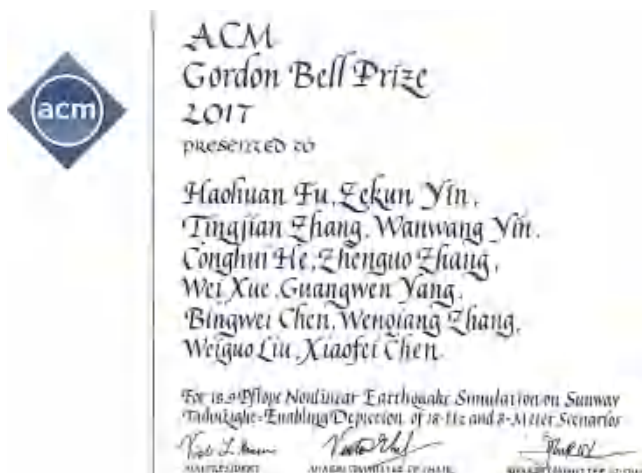 acm
ACM
Gordon Bell Prize
2017
PRESENTED TO
Haohuan Fu, Zekun Yin,
Tingjian Zhang, Wanwang Yin,
Conghui He, Zhenguo Zhang,
Wei Xue, Guangwen Yang,
Bingwei Chen, Wenqiang Zhang,
Weiguo Liu, Xiaofei Chen
For 18.9-Pflops Nonlinear Earthquake Simulation on Sunway
TaihuLight: Enabling Depiction of 18-Hz and 8-Meter Scenarios
ACM PRESIDENT